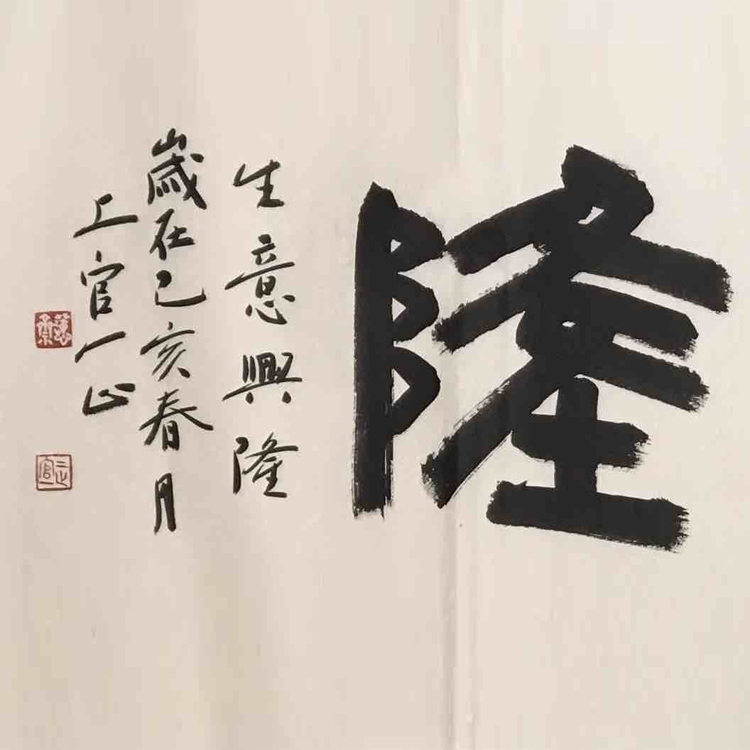 隆
生意興隆
歲在己亥春月
上官一正